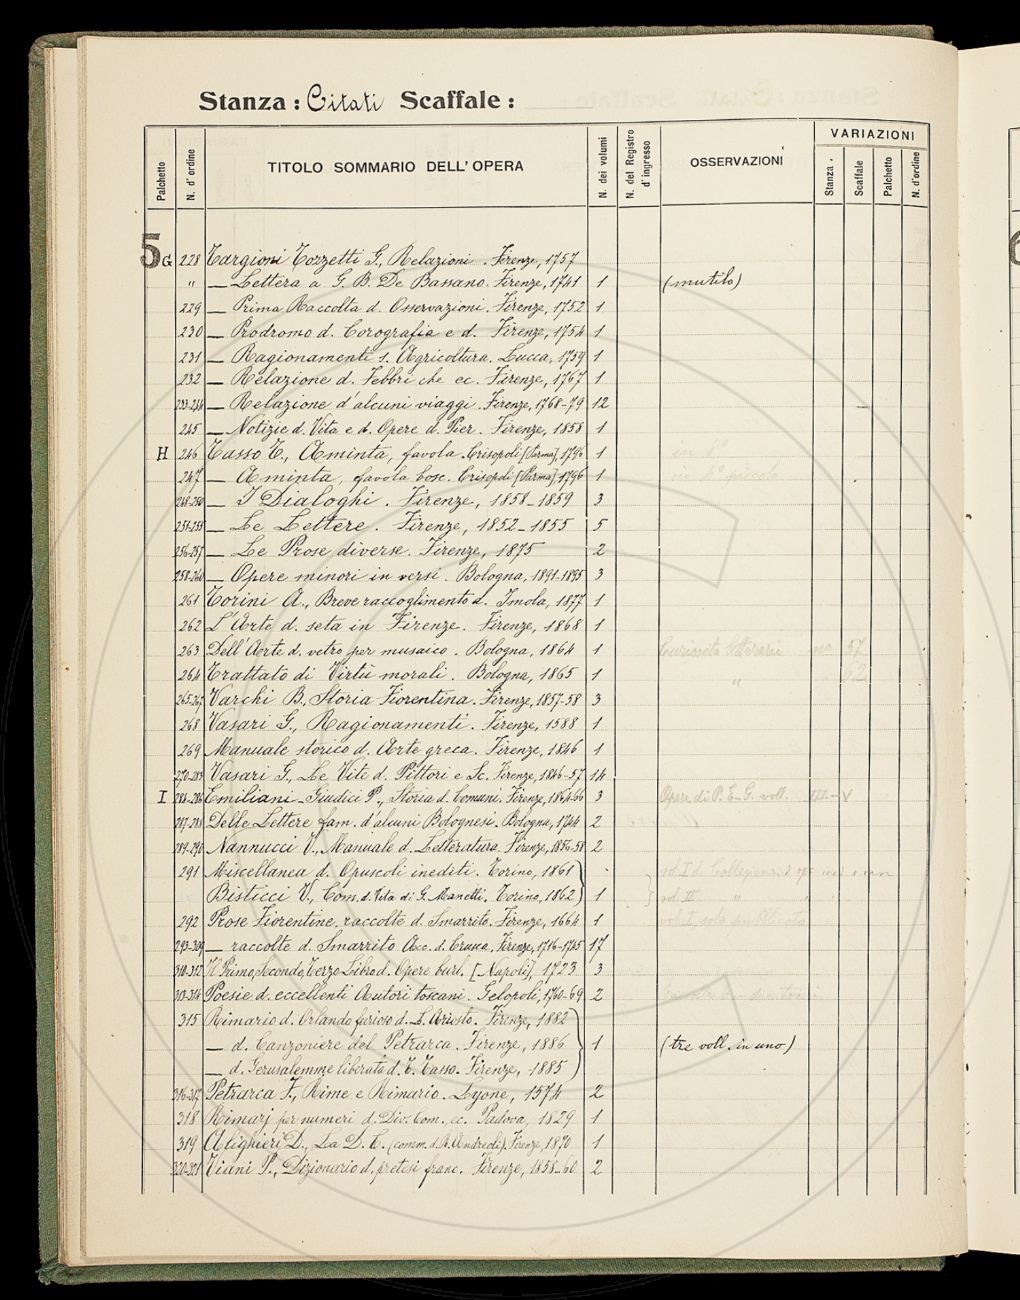 Stanza: Citati Scaffale:
Palchetto N. d'ordine TITOLO SOMMARIO DELL'OPERA N. dei volumi N. del Registro d'ingresso OSSERVAZIONI VARIAZIONI
Stanza Scaffale Palchetto N. d'ordine
5 G 228 Targioni Tozzetti G., Relazioni. Firenze, 1757
" — Lettera a G. B. De Bassano. Firenze, 1741 1 (mutilo)
229 — Prima Raccolta d. Osservazioni. Firenze, 1752 1
230 — Prodromo d. Corografia e d. Firenze, 1754 1
231 — Ragionamenti s. Agricoltura. Lucca, 1759 1
232 — Relazione d. Febbri che ec. Firenze, 1767 1
233-244 — Relazione d'alcuni viaggi. Firenze, 1768-79 12
245 — Notizie d. Vita e d. Opere d. Pier. Firenze, 1858 1
H 246 Tasso T., Aminta, favola. Crisopoli [Parma], 1796 1 in f.º
247 — Aminta, favola bosc. Crisopoli [Parma], 1796 1 in 4º piccolo
248-250 — I Dialoghi. Firenze, 1858-1859 3
251-255 — Le Lettere. Firenze, 1852-1855 5
256-257 — Le Prose diverse. Firenze, 1875 2
258-260 — Opere minori in versi. Bologna, 1891-1895 3
261 Torini A., Breve raccoglimento d. Imola, 1877 1
262 L'Arte d. seta in Firenze. Firenze, 1868 1
263 Dell'Arte d. vetro per musaico. Bologna, 1864 1 Curiosità letterarie 57
264 Trattato di Virtù morali. Bologna, 1865 1 " 62
265-267 Varchi B., Storia Fiorentina. Firenze, 1857-58 3
268 Vasari G., Ragionamenti. Firenze, 1588 1
269 Manuale storico d. Arte greca. Firenze, 1846 1
270-283 Vasari G., Le Vite d. Pittori e Sc. Firenze, 1846-57 14
I 284-286 Emiliani-Giudici P., Storia d. Comuni. Firenze, 1864-66 3 Opere di P. E-G. voll. III-V
287-288 Delle Lettere fam. d'alcuni Bolognesi. Bologna, 1744 2
289-290 Nannucci V., Manuale d. Letteratura. Firenze, 1856-58 2
291 Miscellanea d. Opuscoli inediti. Torino, 1861
Bisticci V., Com. d. Vita di G. Manetti. Torino, 1862 1 vol. II "
292 Prose Fiorentine, raccolte d. Smarrito. Firenze, 1664 1 vol. I, solo pubblicato
293-309 — raccolte d. Smarrito Acc. d. Crusca. Firenze, 1716-1745 17
310-312 Il Primo, Secondo, Terzo Libro d. Opere burl. [Napoli], 1723 3
313-314 Poesie d. eccellenti Autori toscani. Gelopoli, 1760-69 2
315 Rimario d. Orlando furioso d. L. Ariosto. Firenze, 1882
— d. Canzoniere del Petrarca. Firenze, 1886 1 (tre voll. in uno)
— d. Gerusalemme liberata d. T. Tasso. Firenze, 1885
316-317 Petrarca F., Rime e Rimario. Lyone, 1574 2
318 Rimarj per numeri d. Div. Com., ec. Padova, 1829 1
319 Alighieri D., La D. C. (comm. d. R. Andreoli). Firenze, 1870 1
320-321 Viani P., Dizionario d. pretesi franc. Firenze, 1858-60 2